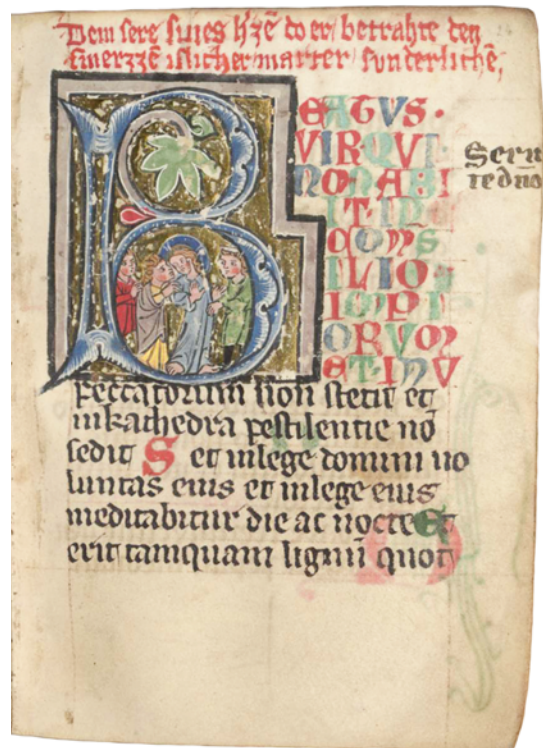 Dem sere suies h'zē do er betrahte den
smerzzē islicher marter sunderlichē,
BEATUS·
VIR·QVI·
NON·ABI
IT·IN
CONS
ILIO·
IMPI
ORVM
ET·IN V
peccatorum non stetit et
inkathedra pestilentie nō
sedit Set inlege domini uo
luntas eius et inlege eius
meditabitur die ac nocte Et
erit tamquam lignū quot
Serui
te dn̄o